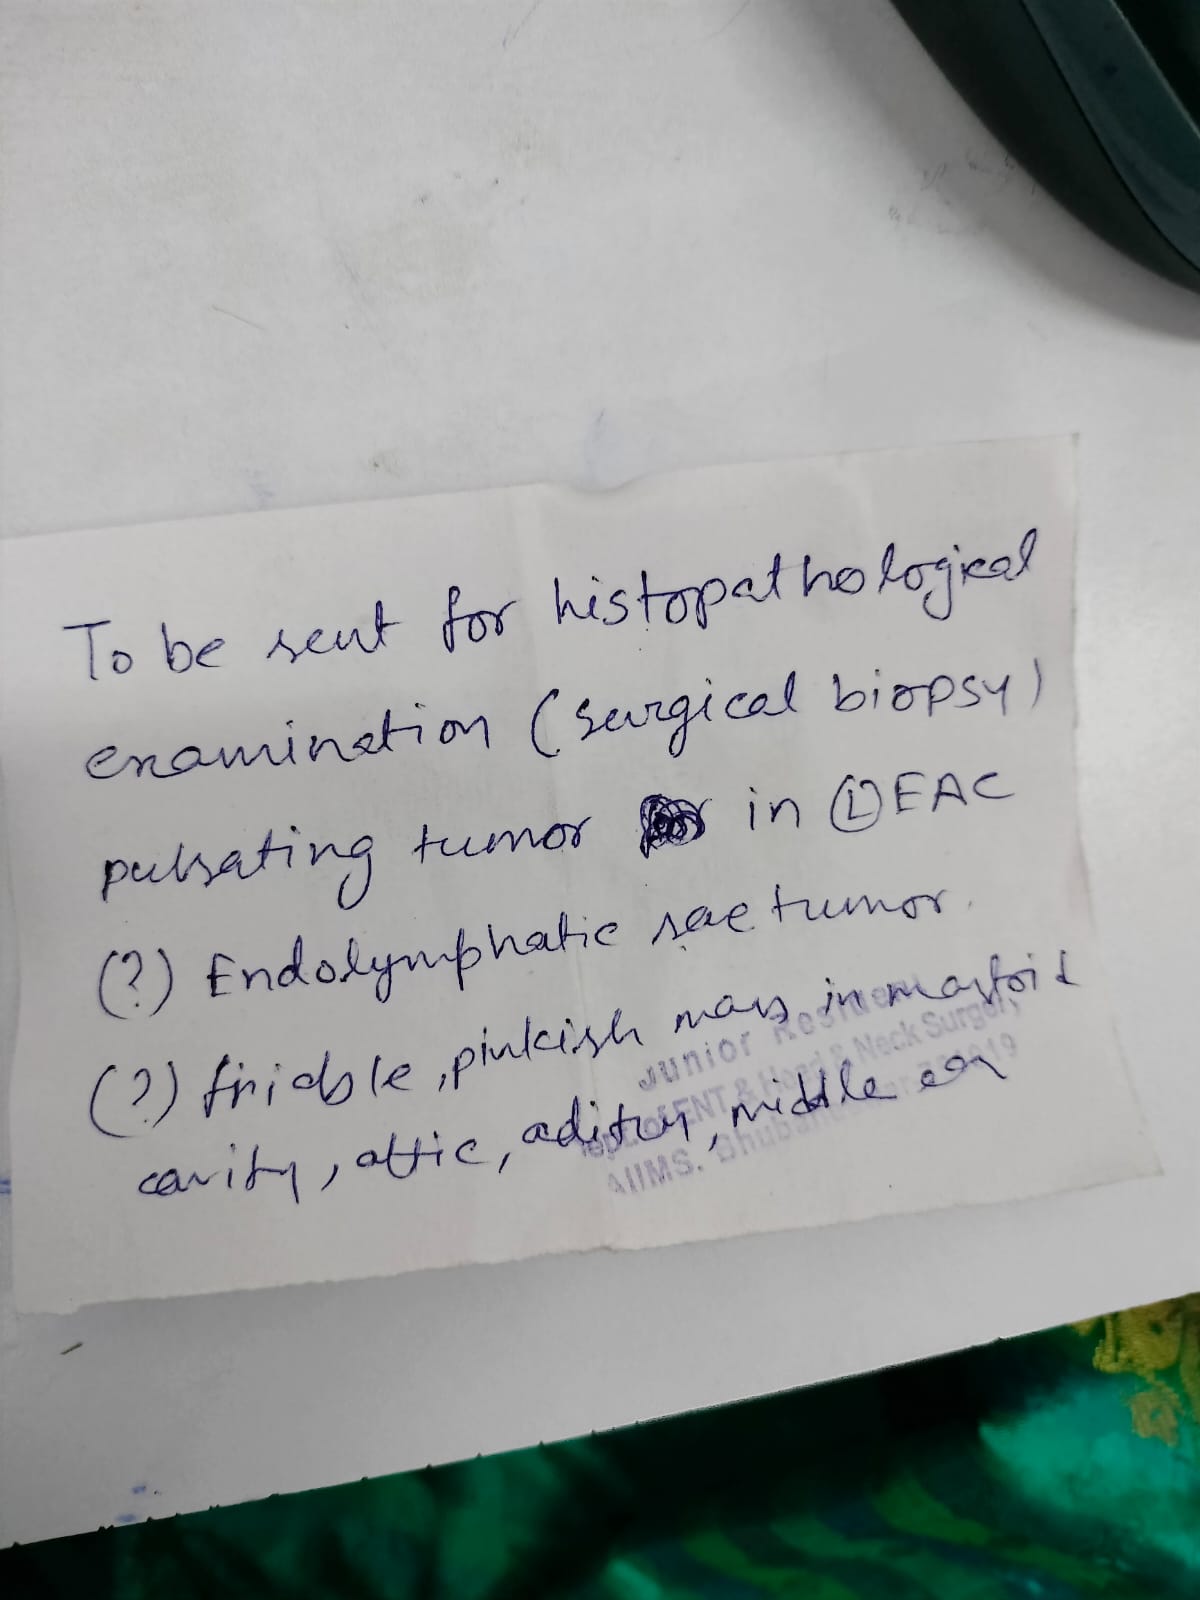 To be sent for histopathological
examination (surgical biopsy)
pulsating tumor in Ⓛ EAC
(?) Endolymphatic sac tumor.
(?) friable, pinkish mass in mastoid
cavity, attic, aditus, middle ear
Junior Resident
Dept. of ENT & Head & Neck Surgery,
AIIMS. Bhubaneswar